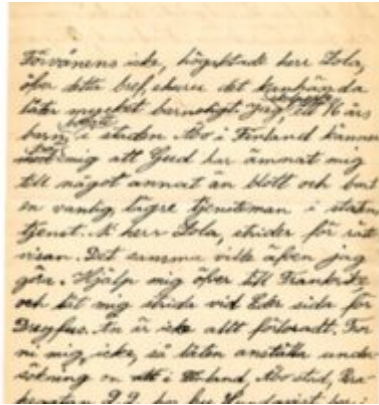 Förvånens icke, högaktade herr Zola,
öfver detta bref, ehuru det kanhända
låter mycket barnsligt. Jag, ett 16 års
barn, i staden Åbo i Finland känner
mig att Gud har ämnat mig
till något annat än blott och bart
en vanlig lägre tjensteman i statens
tjenst. Ni herr Zola, strider för rätt
visan. Det samma ville äfven jag
göra. Hjälp mig öfver till Frankrike
och låt mig strida vid Eder sida för
Dreyfus. Än är icke allt förloradt. Tror
ni mig, icke, så låten anställa under
sökning om i Finland, Åbo stad,
22, hos